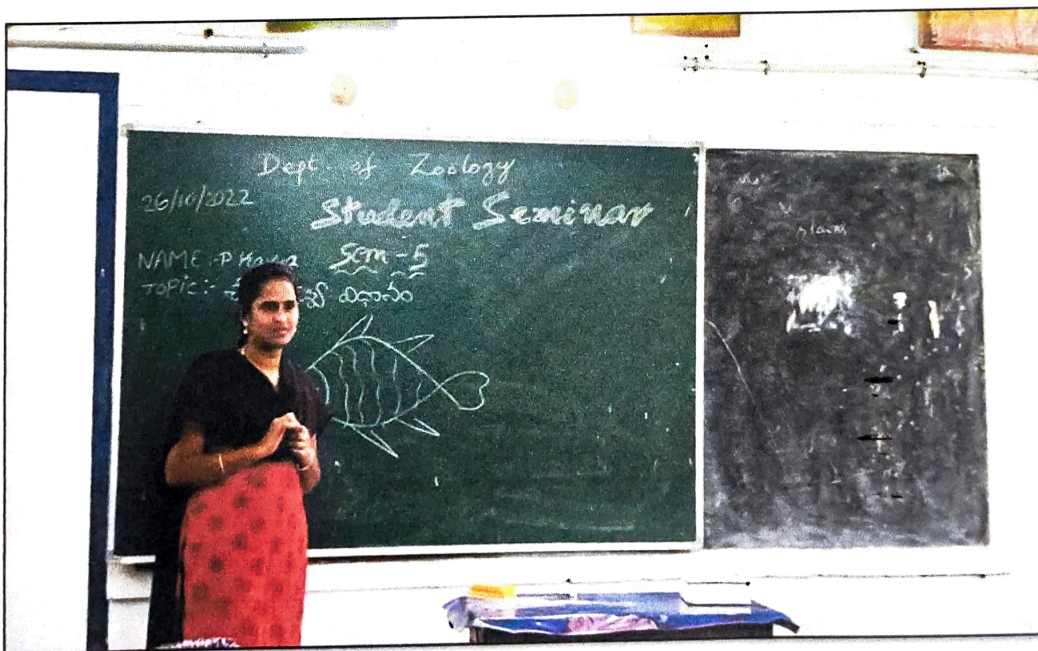 Dept of Zoology
26/10/2022
Student Seminar
NAME :- P
Sem - 5
TOPIC :- విధానం